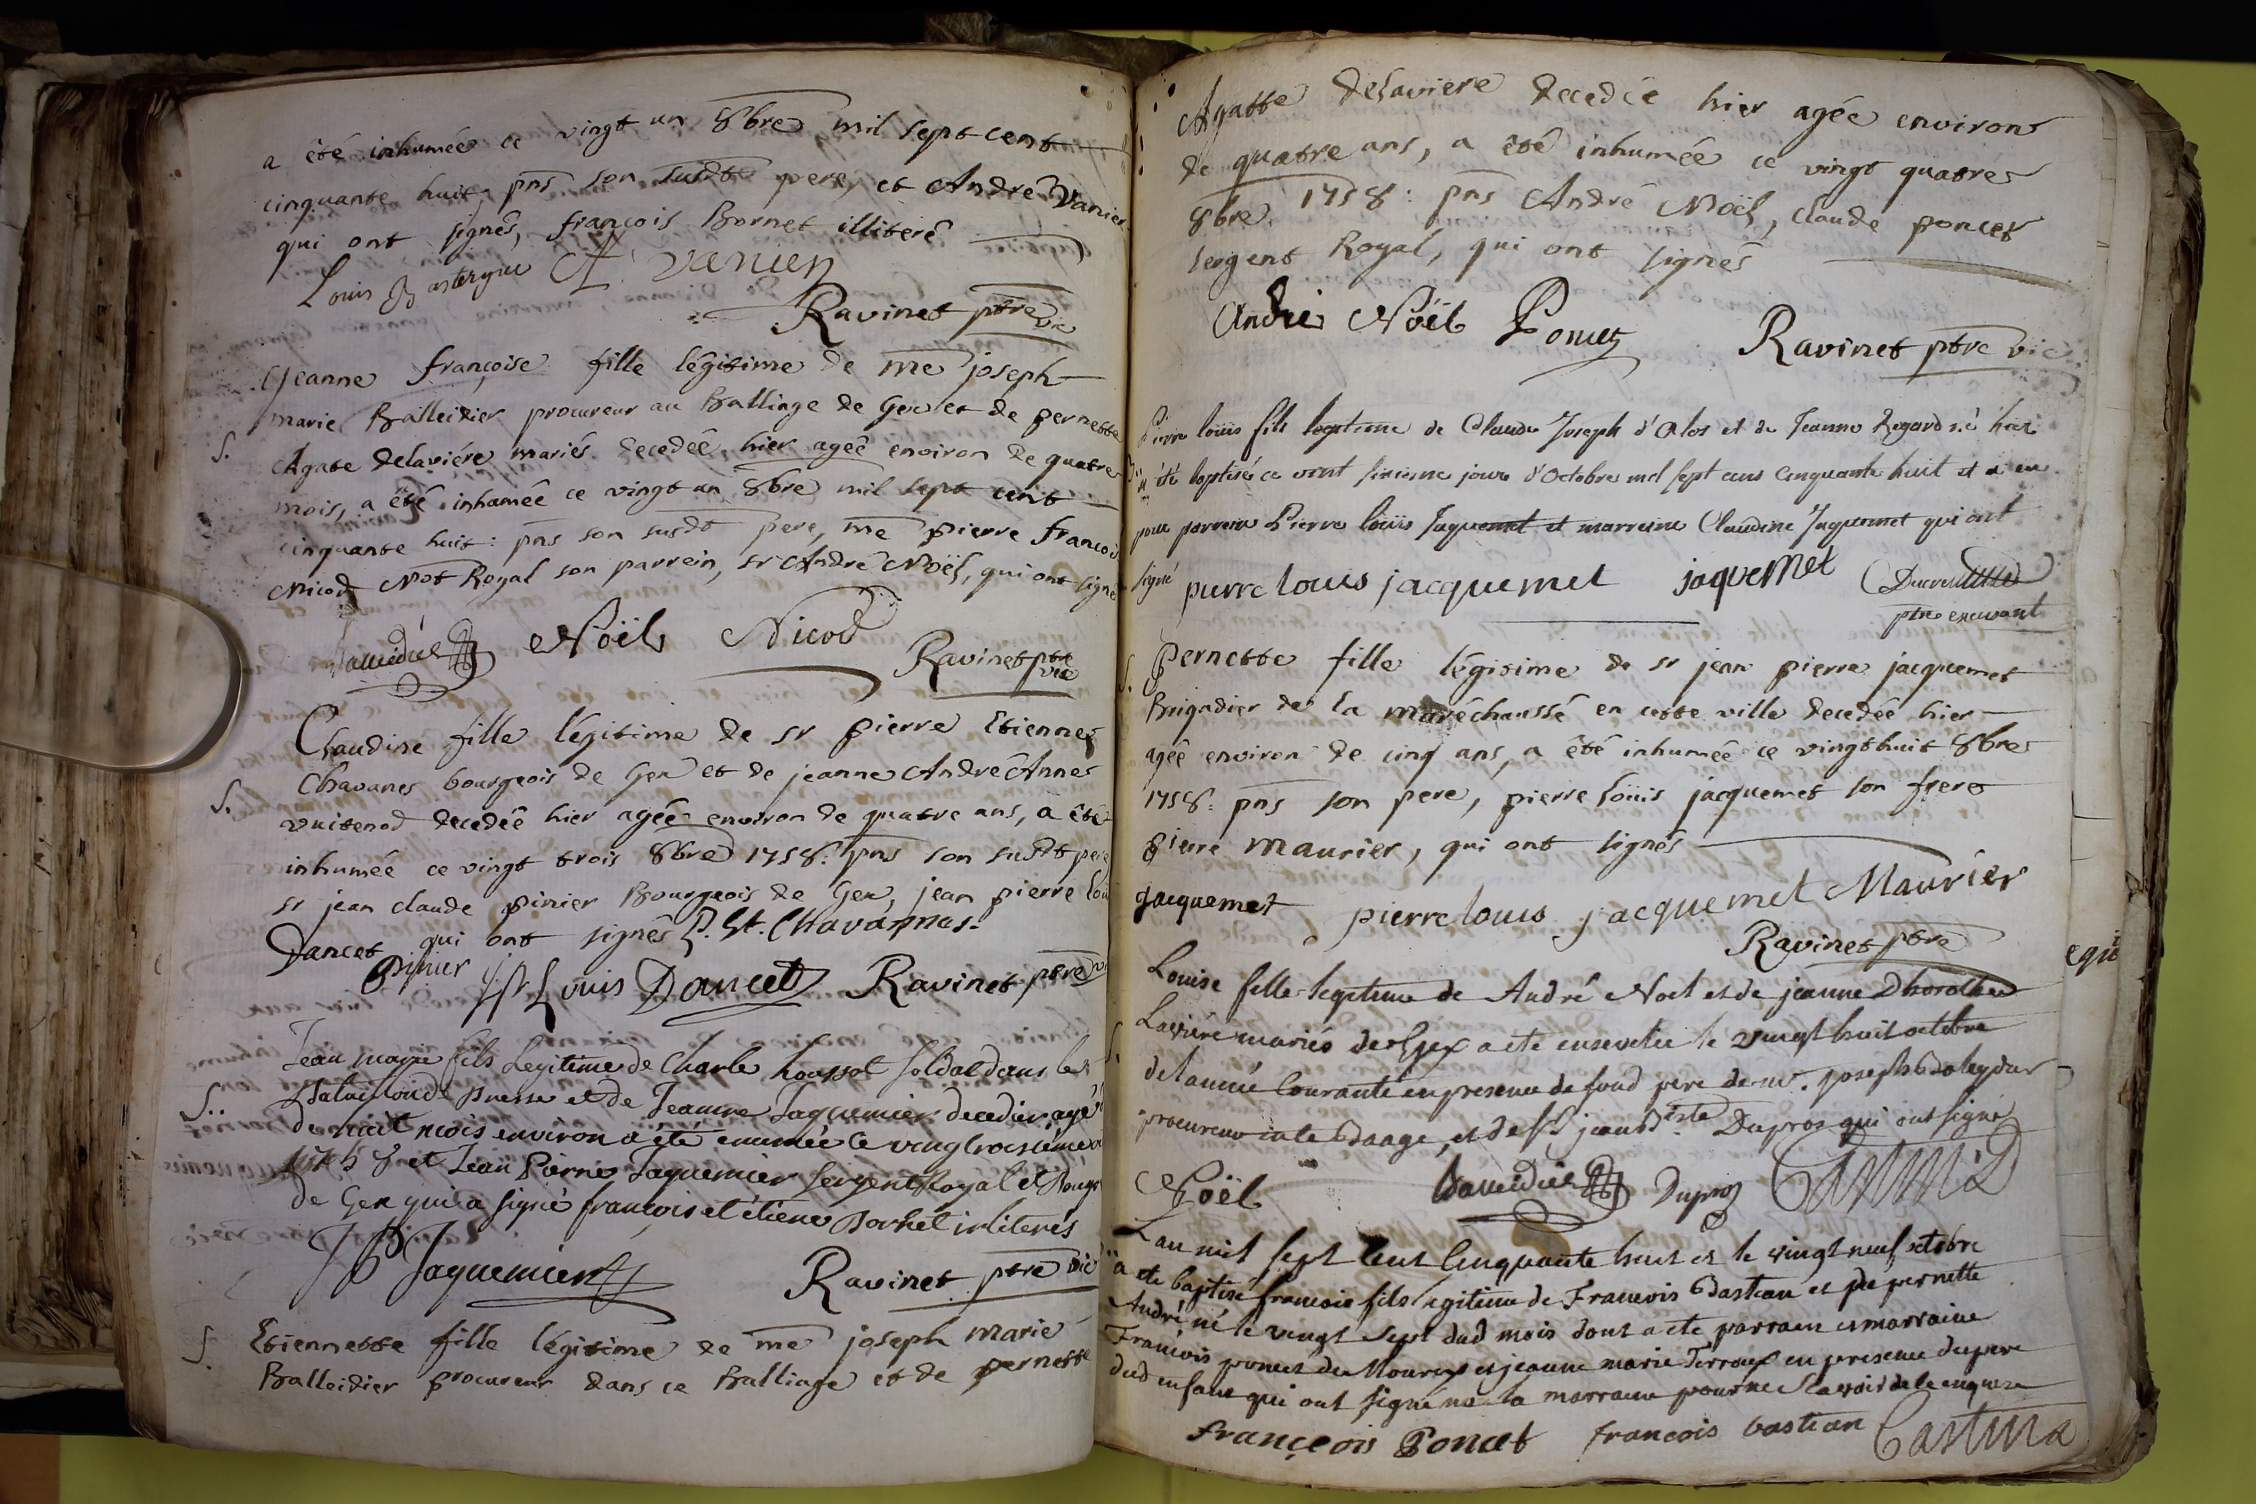 a êté inhumée ce vingt un 8bre mil sept cent
cinquante huit: pns son susdt pere, et André Vanier
qui ont signés, françois Bornet illiteré
Louis A. vanier
Ravinet ptre vic
Jeanne françoise fille légitime de me joseph
marie Balleidier procureur au Balliage de Gex et de pernette
S.
Agate Delaviére mariés decedéê hier ageê environ de quatre
mois, a êté inhumeê ce vingt un 8bre mil sept cent
cinquante huit: pns son susdt pere, me pierre françois
Nicod Not Royal son parrein, sr André Noël, qui ont signé
Noël Nicod
Ravinet ptre vic
Claudine fille légitime de sr pierre Etienne
Chavanes bourgeois de Gex et de jeanne Andreânne
S.
vuitenod decedéê hier agéê environ de quatre ans, a êté
inhuméê ce vingt trois 8bre 1758: pns son susdt pere
sr jean claude pinier Bourgeois de Gex, jean pierre
Dancet qui ont signés P. Et. Chavannes.
pinier Louis Dancet Ravinet ptre
Jean fils Legitime de Charle soldat dans le
S.
et de Jeanne Jaquemier decedier agé
de mois environ a été ce
1758 et Jean Pierre Jaquemier sergent Royal et
de Gex qui a signé françois et étiene Bornet
JP Jaquemier
Ravinet ptre vic
S.
Etiennette fille légitime de me joseph marie
Balleidier procureur dans ce Balliage et de pernette
Agatte Delaviere decedée hier agée environ
de quatre ans, a êté inhumée ce vingt quatre
8bre 1758: pns André Noël, Claude poncet
sergent Royal, qui ont signés
André Noël Poncet
Ravinet ptre vic
Pierre loüis fils legitime de Claude Joseph d'Alos et de Jeanne Regard né hier
a été baptisé ce vint sixiesme jour d'Octobre mil sept cens cinquante huit et a eu
pour parrein Pierre loüis Jaquemet et marreine Claudine Jaquemet qui ont
signé pierre louis jacquemet jaquemet
ptre
S.
Pernette fille légitime de sr jean pierre jacquemet
Brigadier de la maréchaussé en cette ville decedéê hier
agéê environ de cinq ans, a êté inhuméê ce vingt huit 8bre
1758: pns son pere, pierre loüis jacquemet son frere
pierre maurier, qui ont signés
Jacquemet pierre louis jacquemet Maurier
Ravinet ptre
Louise fille legitime de André Noel et de jeanne Dhorothée
S.
Laviére mariés de Gex a ete ensevelie le vingt huit octobre
de lannée Courante en presence de son pere de mr. joseph
procureur et de sr jean Btiste Dupros qui ont signé
Noël Dupros
Lan mil sept Cent Cinquante huit et le vingt neuf octobre
a ete baptisé francois fils legitime de Francois Bastian et de pernette
André né le vingt sept dud mois dont a ete parrain et marraine
Francois poncet de Mourex et jeanne marie Terroux en presence du pere
dud enfant qui ont signé no la marraine pour ne scavoir de le enquise
françois Poncet francois bastian